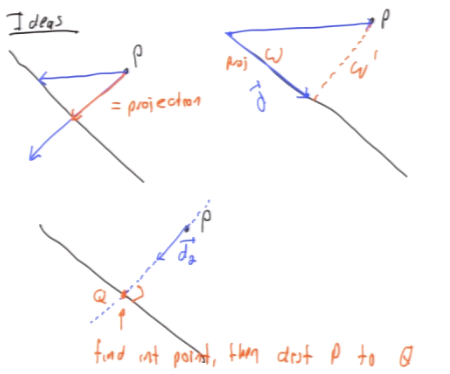 Ideas
P
= projection
P
proj ω
d⃗
ω'
P
d⃗₂
Q
find int point, then dist P to Q